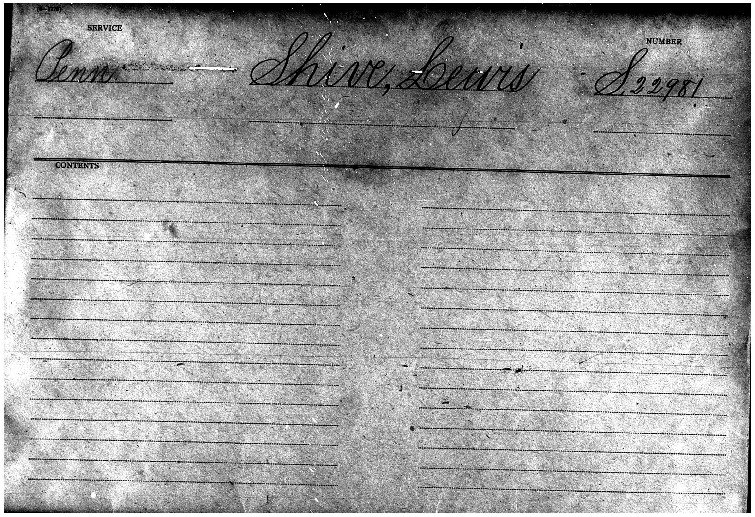 SERVICE
NUMBER
Penn.
Shive, Lewis
S. 22981
CONTENTS